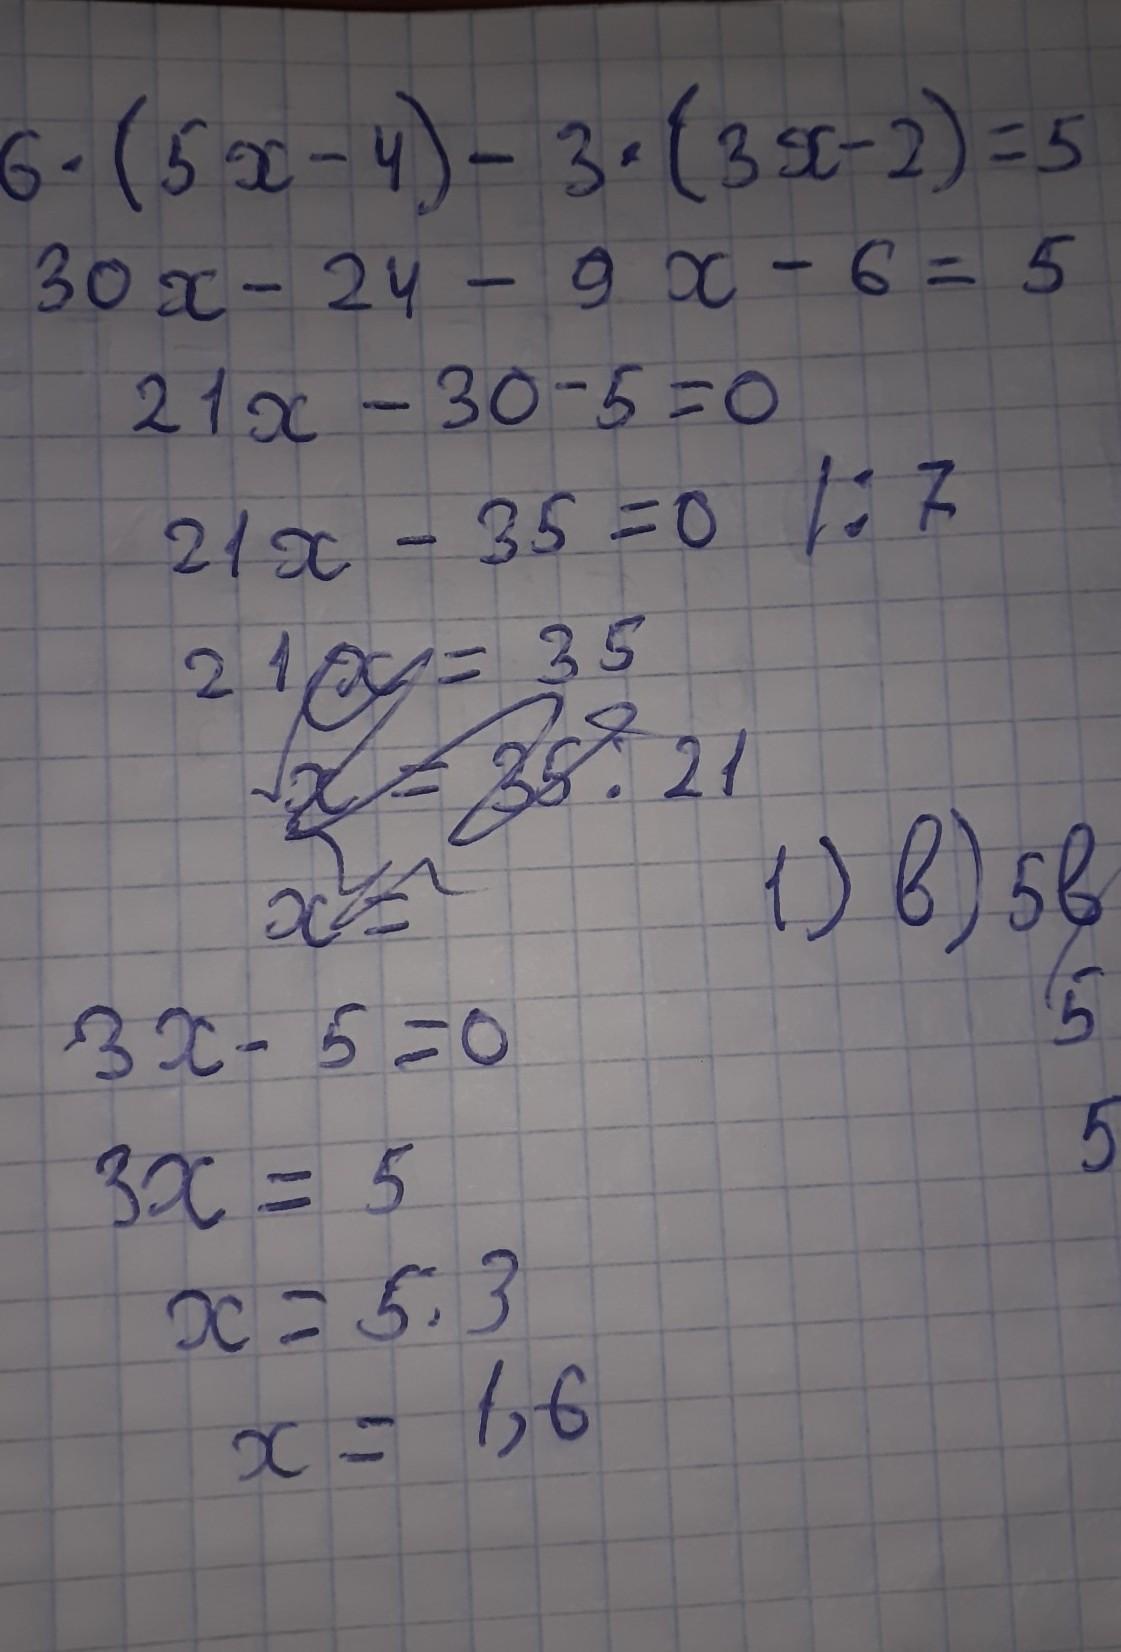 6·(5x-4)-3·(3x-2)=5
30x-24-9x-6=5
21x-30-5=0
21x-35=0 /:7
21x=35
x=35:21
x=
1) в) 5в
5
5
3x-5=0
3x=5
x=5:3
x=1,6